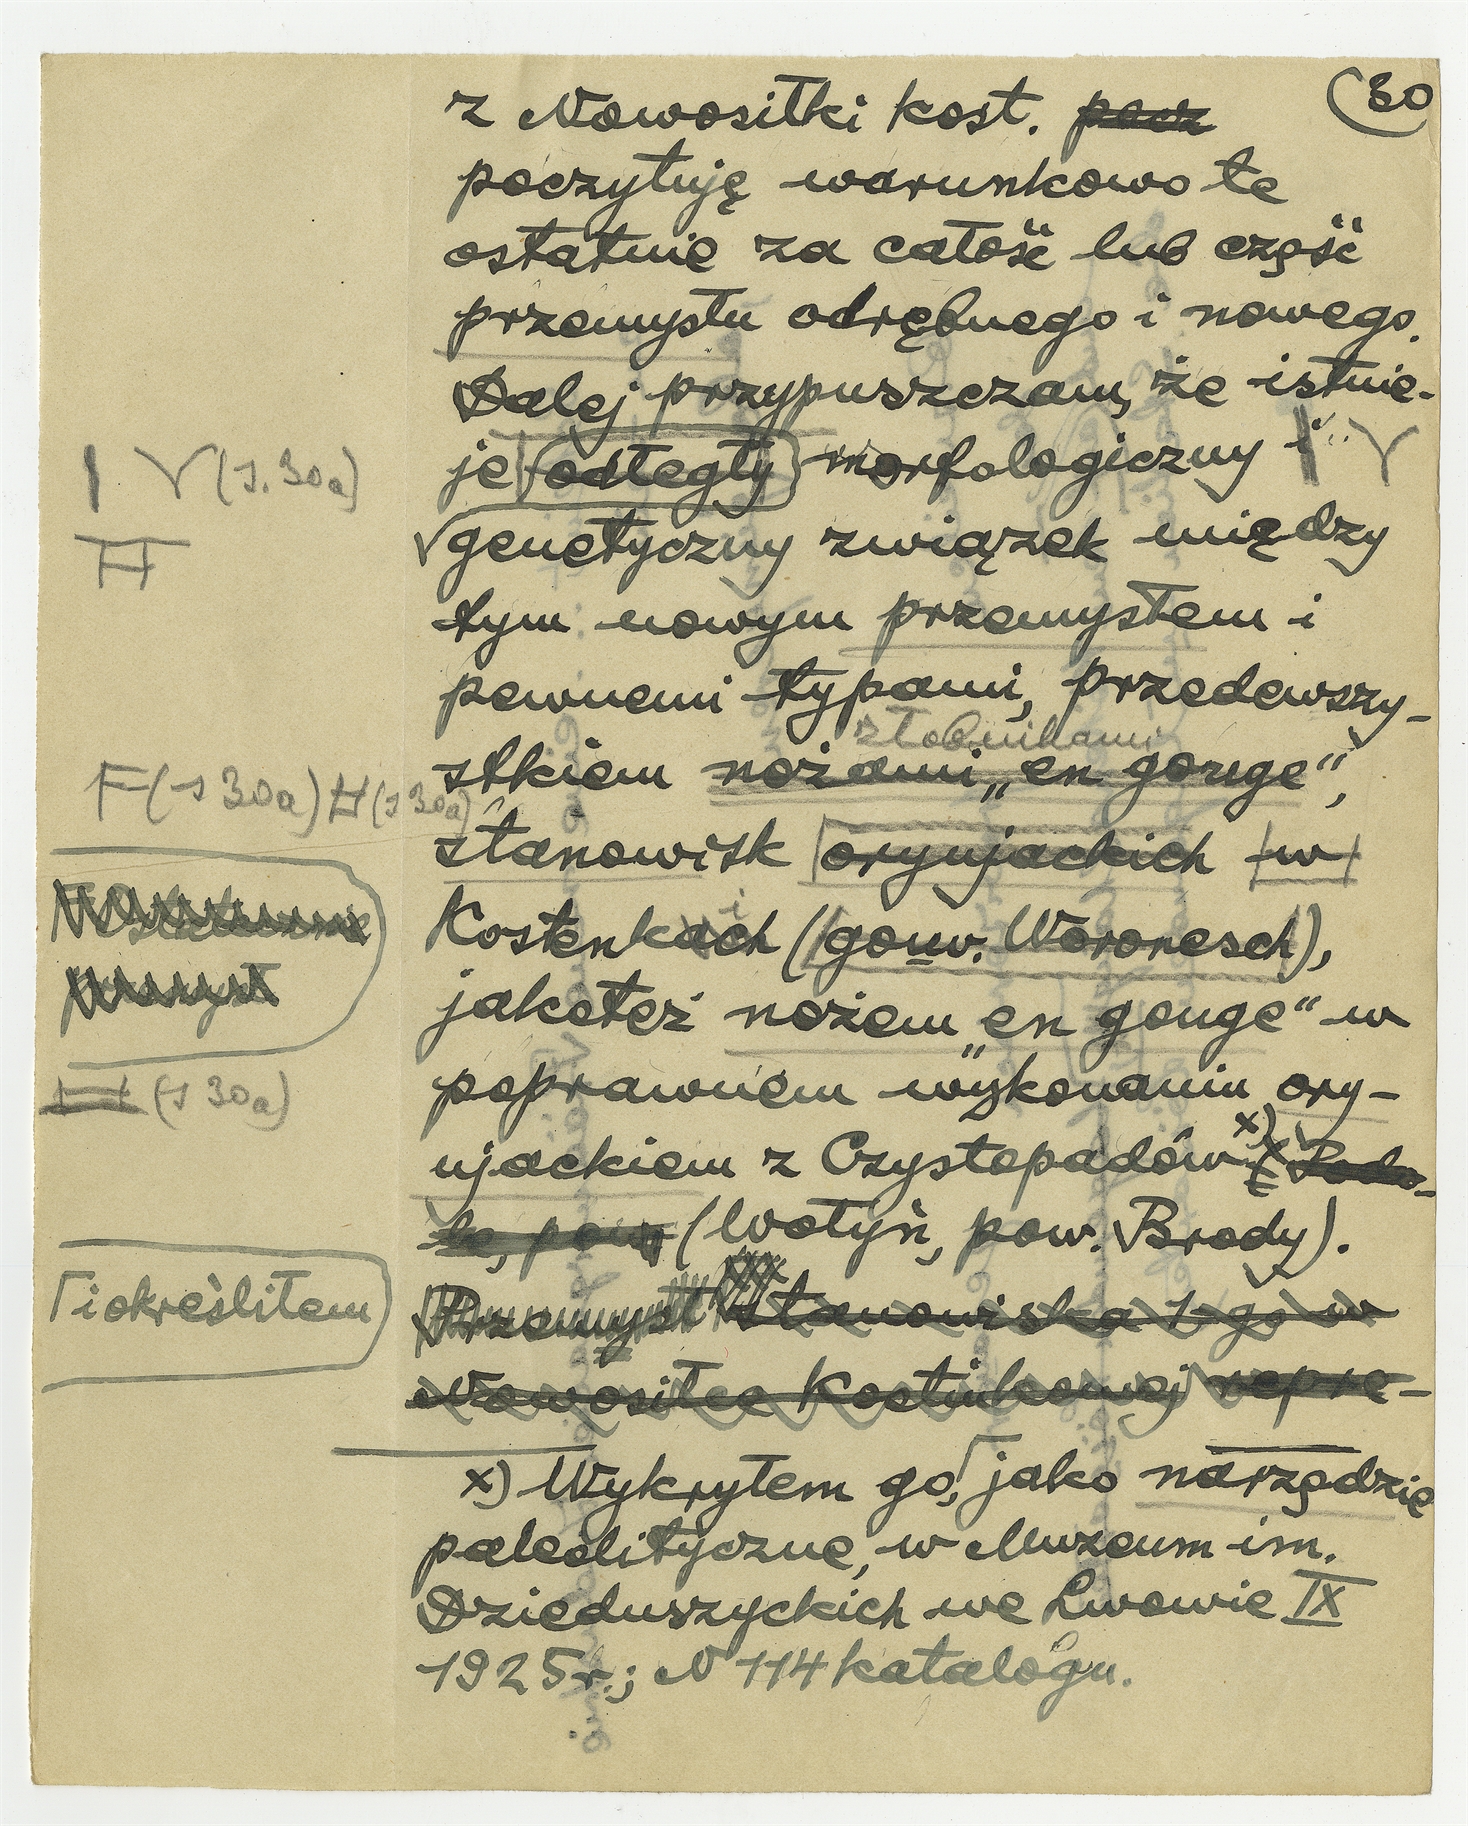 30
z Nowosiłki kost. pocz
poczytuję warunkowo te
ostatnie za całość lub część
przemysłu odrębnego i nowego.
Dalej przypuszczam, że istnie-
je odległy morfologiczny i
I V (s. 30a)
H
genetyczny związek między
tym nowym przemysłem i
pewnemi typami, przedewszy-
żłobnikami
stkiem nożami „en gouge“,
F (s 30a) H (s 30a)
stanowisk orynjackich w
Kostenkach (gouv. Woronesch),
jakoteż nożem „en gouge“ w
poprawnem wykonaniu ory-
H (s 30a)
njackiem z Czystopadów x) (Podo-
le, pow (Wołyń, pow. Brody).
i określiłem
Przemysł stanowiska 1-go w
Nowosiłce Kostiukowej repre-
x) Wykryłem go, jako narzędzie
paleolityczne, w Muzeum im.
Dzieduszyckich we Lwowie IX
1925 r.; N 114 katalogu.